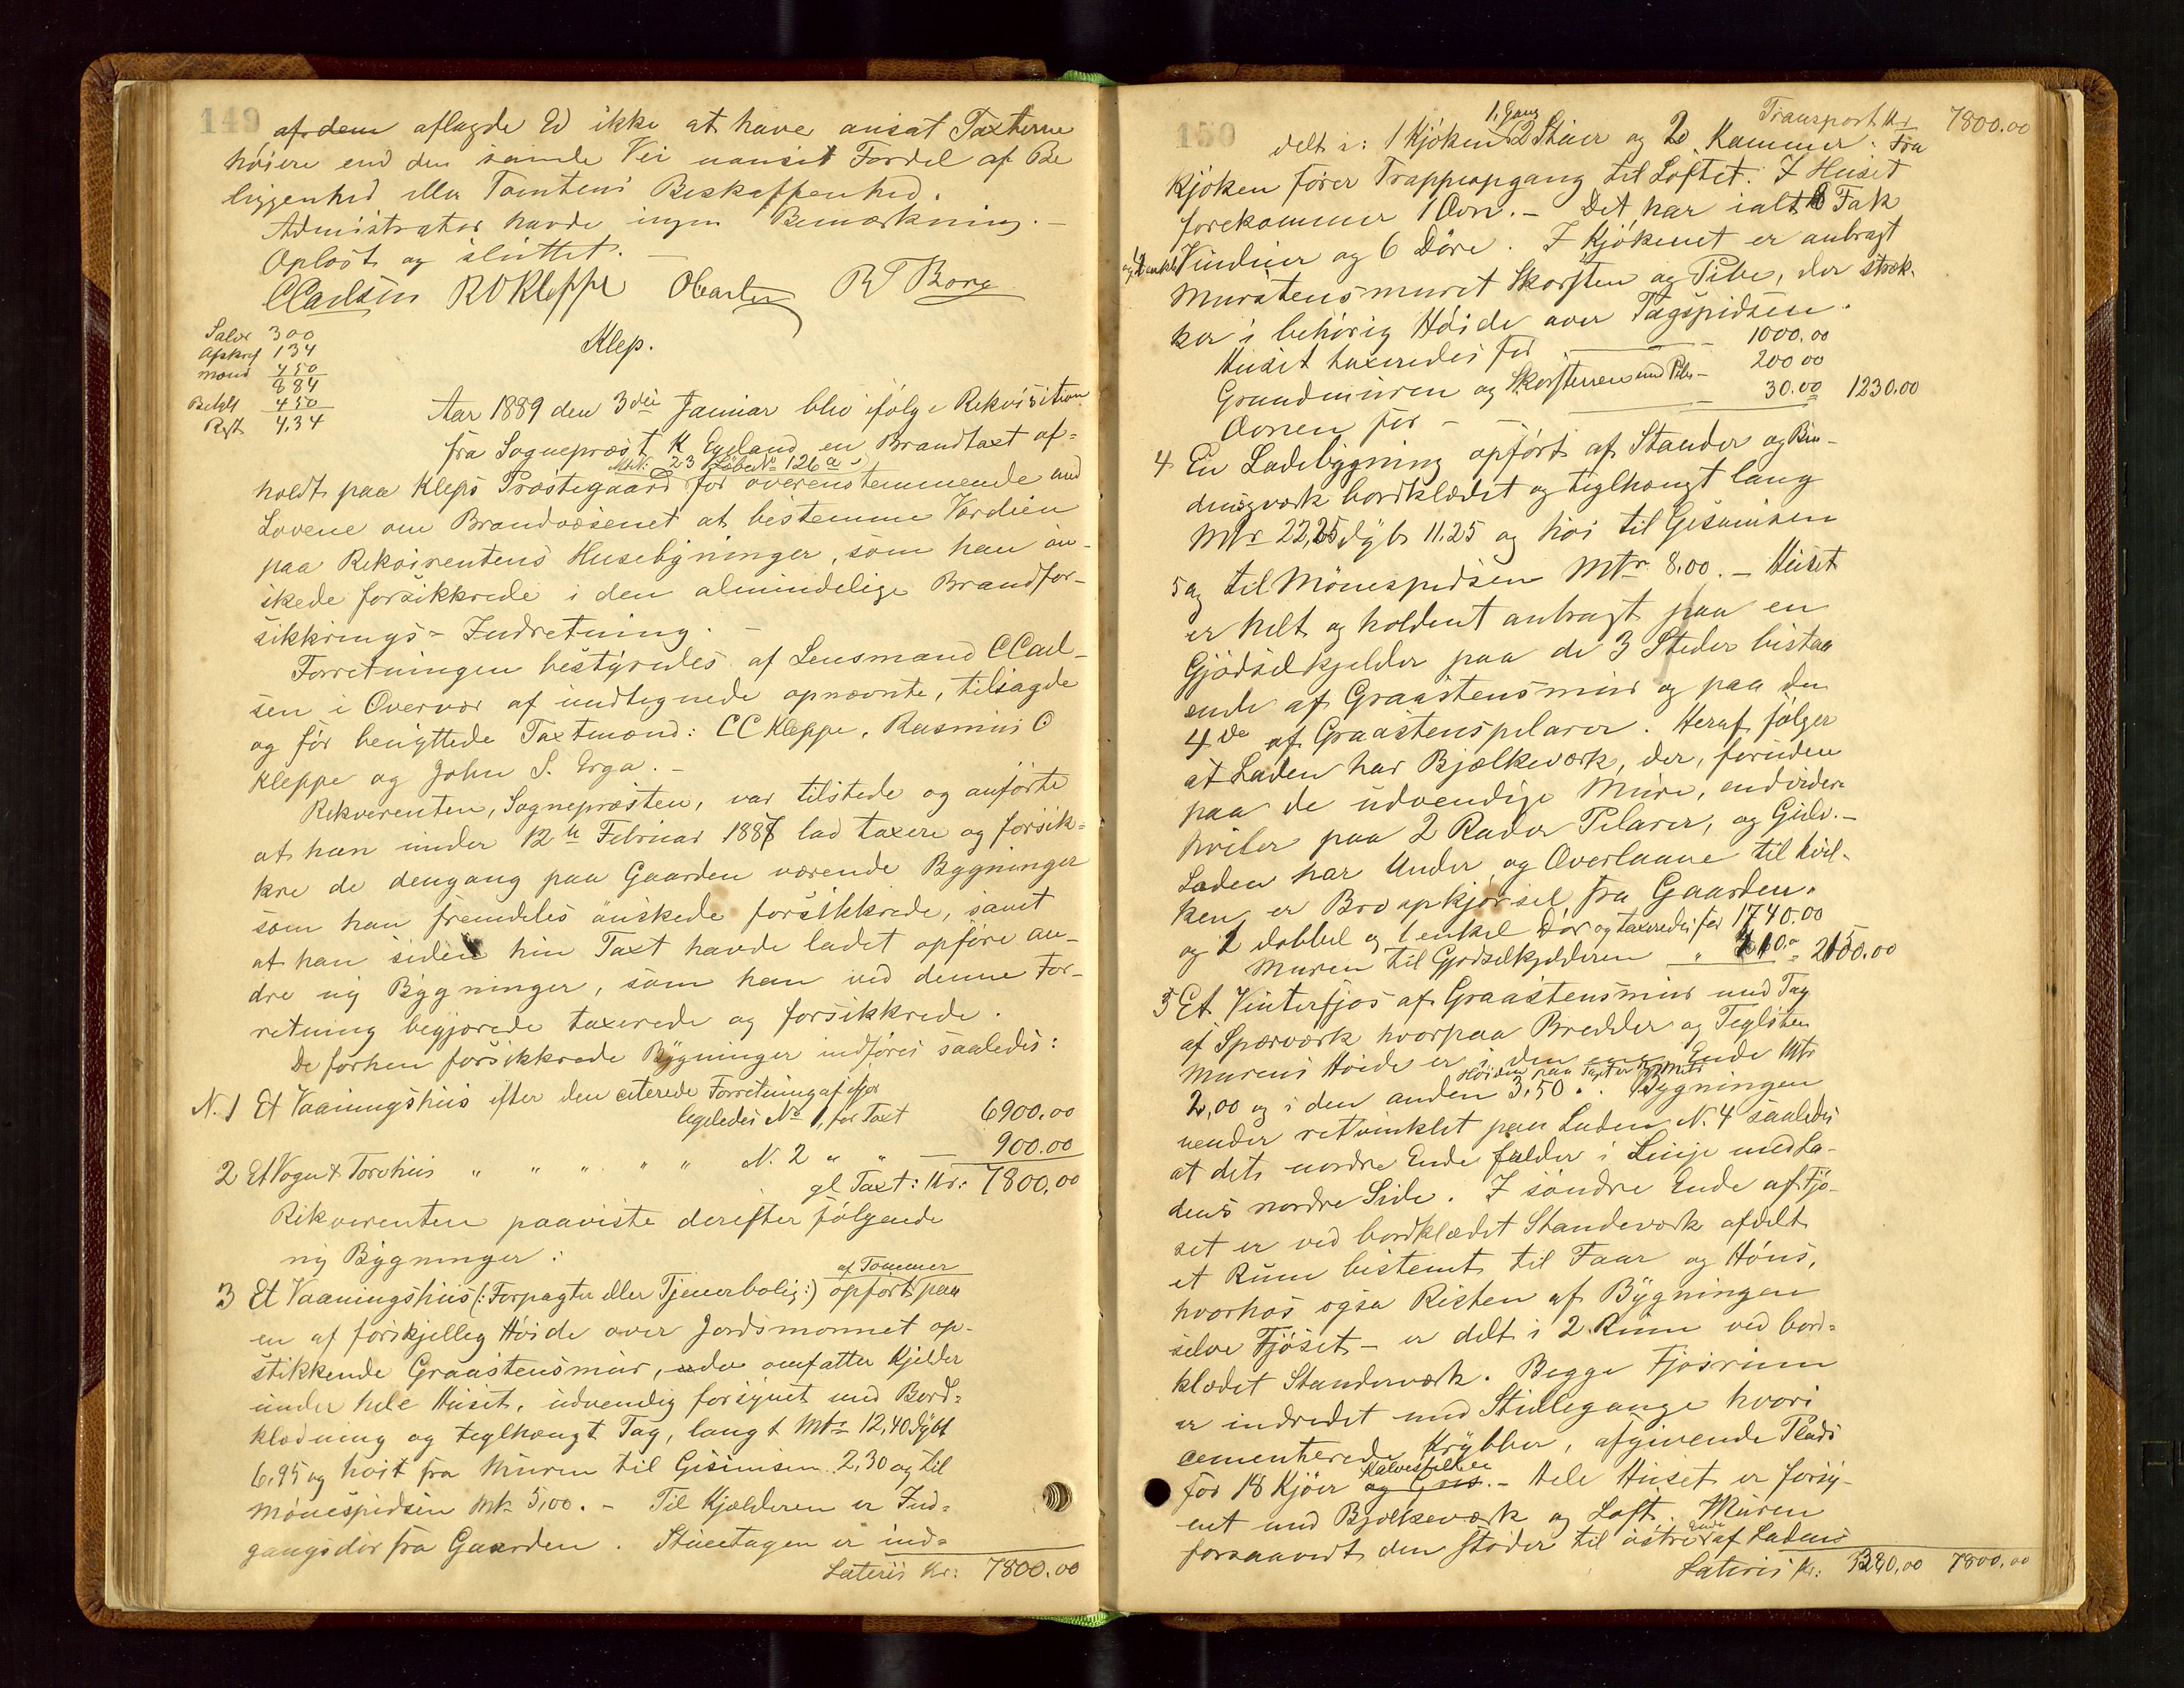 149
af dem aflagde Ed ikke at have ansat Taxterne
høiere end den samle Vei uanset Fordel af Be
liggenhed eller Tomtens Beskaffenhed.
Administrator havde ingen Bemærkning. –
Oplæst og sluttet. –
CCarlsen R O Kleppe R T Borg
Salær 300
Afskref 134
Mænd 450
884
Betalt 450
Rest 4,34
Klep.
Aar 1889 den 3die Januar blev ifølge Rekvisition
fra Sognepræst K Egeland en Brandtaxt af=
MtN: 23 LøbeNo 126a
holdt paa Kleps Præstegaard for overenstemmende med
Lovene om Brandvæsenet at bestemme Værdien
paa Rekvirentens Husebygninger, som han øn-
skede forsikkrede i den almindelige Brandfor-
sikkrings-Indretning. –
Forretningen bestyredes af Lensmand CCarl-
sen i Overvær af undtegnede opnævnte, tilsagde
og før benyttede Taxtmænd: CC Kleppe, Rasmus O
Kleppe og John S. Erga. –
Rekvirenten, Sognepræsten, var tilstede og anførte
at han under 12te Februar 1887 lod taxere og forsik=
kre de dengang paa Gaarden værende Bygninger
som han fremdeles ønskede forsikkrede, samt
at han siden hin Taxt havde ladet opføre an-
dre ny Bygninger, som han ved denne For-
retning begjærede taxerede og forsikkrede.
De forhen forsikkrede Bygninger indføres saaledes:
N. 1 Et Vaaningshuus efter den citerede Forretning af ifjor
ligeledes No 1, for Taxt 6900.00
2 Et Vogn & Torvhuus " " " " " N. 2 " " — 900.00
gl Taxt: Kr: 7800,00
Rekvirenten paaviste derefter følgende
ny Bygninger:
af Tømmer
3 Et Vaaningshuus (: Forpagter eller Tjenerbolig :) opført paa
en af forskjellig Høide over Jordsmonnet op-
stikkende Graastensmuur, der omfatter Kjelder
under hele Huset, udvendig forsynet med Bord=
klædning og teglhængt Tag, langt Mtr 12,40 dybt
6,95 og høit fra Muren til Gesimsen 2,30 og til
Mønespidsen Mtr 5,00. – Til Kjælderen er Ind=
gangsdør fra Gaarden. Stueetagen er ind=
Lateris Kr: 7800.00
150
Transport Kr 7800.00
1, Gang
delt i: 1 Kjøken 2 Stuer og 2 Kammer. Fra
Kjøken fører Trappeopgang til Loftet. I Huset
forekommer 1 Ovn. – Det har ialt 8 Fak
og 2 enkle Vinduer og 6 Døre. I Kjøkenet er anbragt
Murstensmuret Skorsten og Pibe, der stræk-
ker i behørig Høide over Tagspidsen.
Huset taxeredes for — 1000.00
Grundmuren og Skorstenen med Pibe – 200 00
Ovnen for – – 30.00 1230.00
4 En Ladebygning opført af Stander og Bin-
dingsværk bordklædet og teglhængt lang
Mtr 22,25 dyb 11.25 og høi til Gesimsen
5 og til Mønespidsen Mtr 8.00. – Huset
er helt og holdent anbragt paa en
Gjødselkjelder paa de 3 Steder bestaa
ende af Graastensmuur og paa den
4de af Graastenspilarer. Heraf følger
at Laden har Bjælkeværk, der, foruden
paa de udvendige Mure, endvidere
hviler paa 2 Rader Pilarer, og Gulv. –
Laden har Under og Overlaave til hvil-
ken er Broopkjørsel fra Gaarden.
og 2 dobbel og 1 enkel Dør og taxeredes for 1740.00
Muren til Gjødselkjelderen " 410.00 = 2150.00
5 Et Vinterfjøs af Graastensmuur med Tag
af Sparværk hvorpaa Bredder og Teglsten
Murens Høide er i den ene Ende Mtr
2,00 og i den anden 3,50. Bygningen
vender retvinklet paa Laden N. 4 saaledes
at dets nordre Ende falder i Linje med La-
dens nordre Side. I søndre Ende af Fjø-
set er ved bordklædet Standeværk afdelt
et Rum bestemt til Faar og Høns,
hvorhos ogsa Resten af Bygningen
selve Fjøset – er delt i 2 Rum ved bord=
klædet Standerværk. Begge Fjøsrum
er indredet med Stillegange hvori
cementerede Krybber, afgivende Plads
Kalvestelder
for 18 Kjøer og Gris. – Hele Huset er forsy-
net med Bjælkeværk og Loft. Muren
Ende
forsaavidt den støder til østre af Ladens
Lateris Kr: 3380,00 7800,00